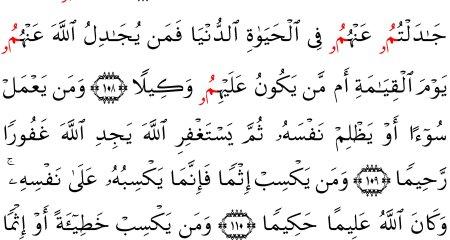 جَـٰدَلْتُمُۥ عَنْهُمُۥ فِى ٱلْحَيَوٰةِ ٱلدُّنْيَا فَمَن يُجَـٰدِلُ ٱللَّهَ عَنْهُمُۥ
يَوْمَ ٱلْقِيَـٰمَةِ أَم مَّن يَكُونُ عَلَيْهِمُۥ وَكِيلًا ١٥٨ وَمَن يَعْمَلْ
سُوٓءًا أَوْ يَظْلِمْ نَفْسَهُۥ ثُمَّ يَسْتَغْفِرِ ٱللَّهَ يَجِدِ ٱللَّهَ غَفُورًا
رَّحِيمًا ١٥٩ وَمَن يَكْسِبْ إِثْمًا فَإِنَّمَا يَكْسِبُهُۥ عَلَىٰ نَفْسِهِۦ ۚ
وَكَانَ ٱللَّهُ عَلِيمًا حَكِيمًا ١١٠ وَمَن يَكْسِبْ خَطِيٓـَٔةً أَوْ إِثْمًا